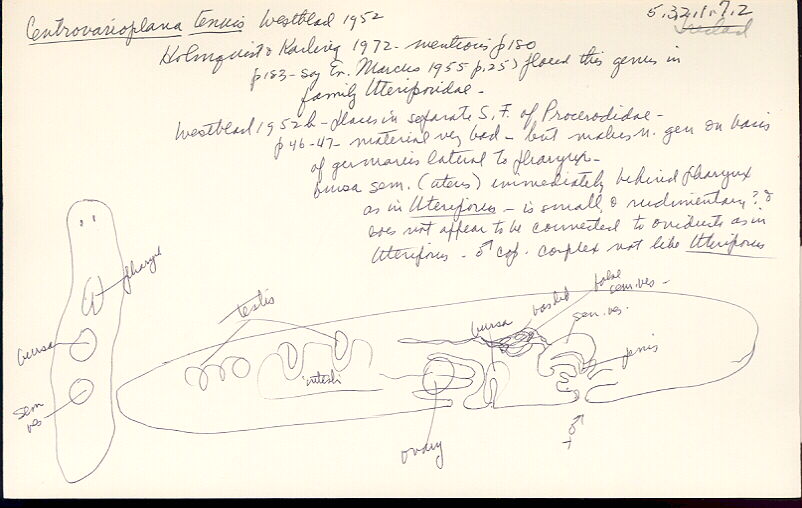 Centrovarioplana tenuis Westblad 1952
5.32.1.7.2
Holmquist & Karling 1972 - mentions p180
p183 - say Er. Marcus 1955 p.25) placed this genus in
family Uteriporidae -
Westblad 1952b - places in separate S.F. of Procerodidae -
p46-47 - material very bad - but makes n. gen on basis
of germaries lateral to pharynx -
bursa sem. (uterus) immediately behind pharynx
as in Uteriporus - is small & rudimentary? &
does not appear to be connected to oviducts as in
Uteriporus - ♂ cop. complex not like Uteriporus
pharynx
bursa
sem
ves
testis
intesti
ovary
bursa
false
sem. ves -
sem. ves.
penis